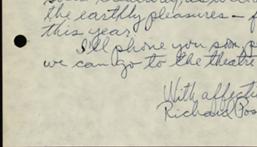 the earthly pleasures — f
this year.
I'll phone you soon, p
we can go to the theatre
With affecti
Richard Pos